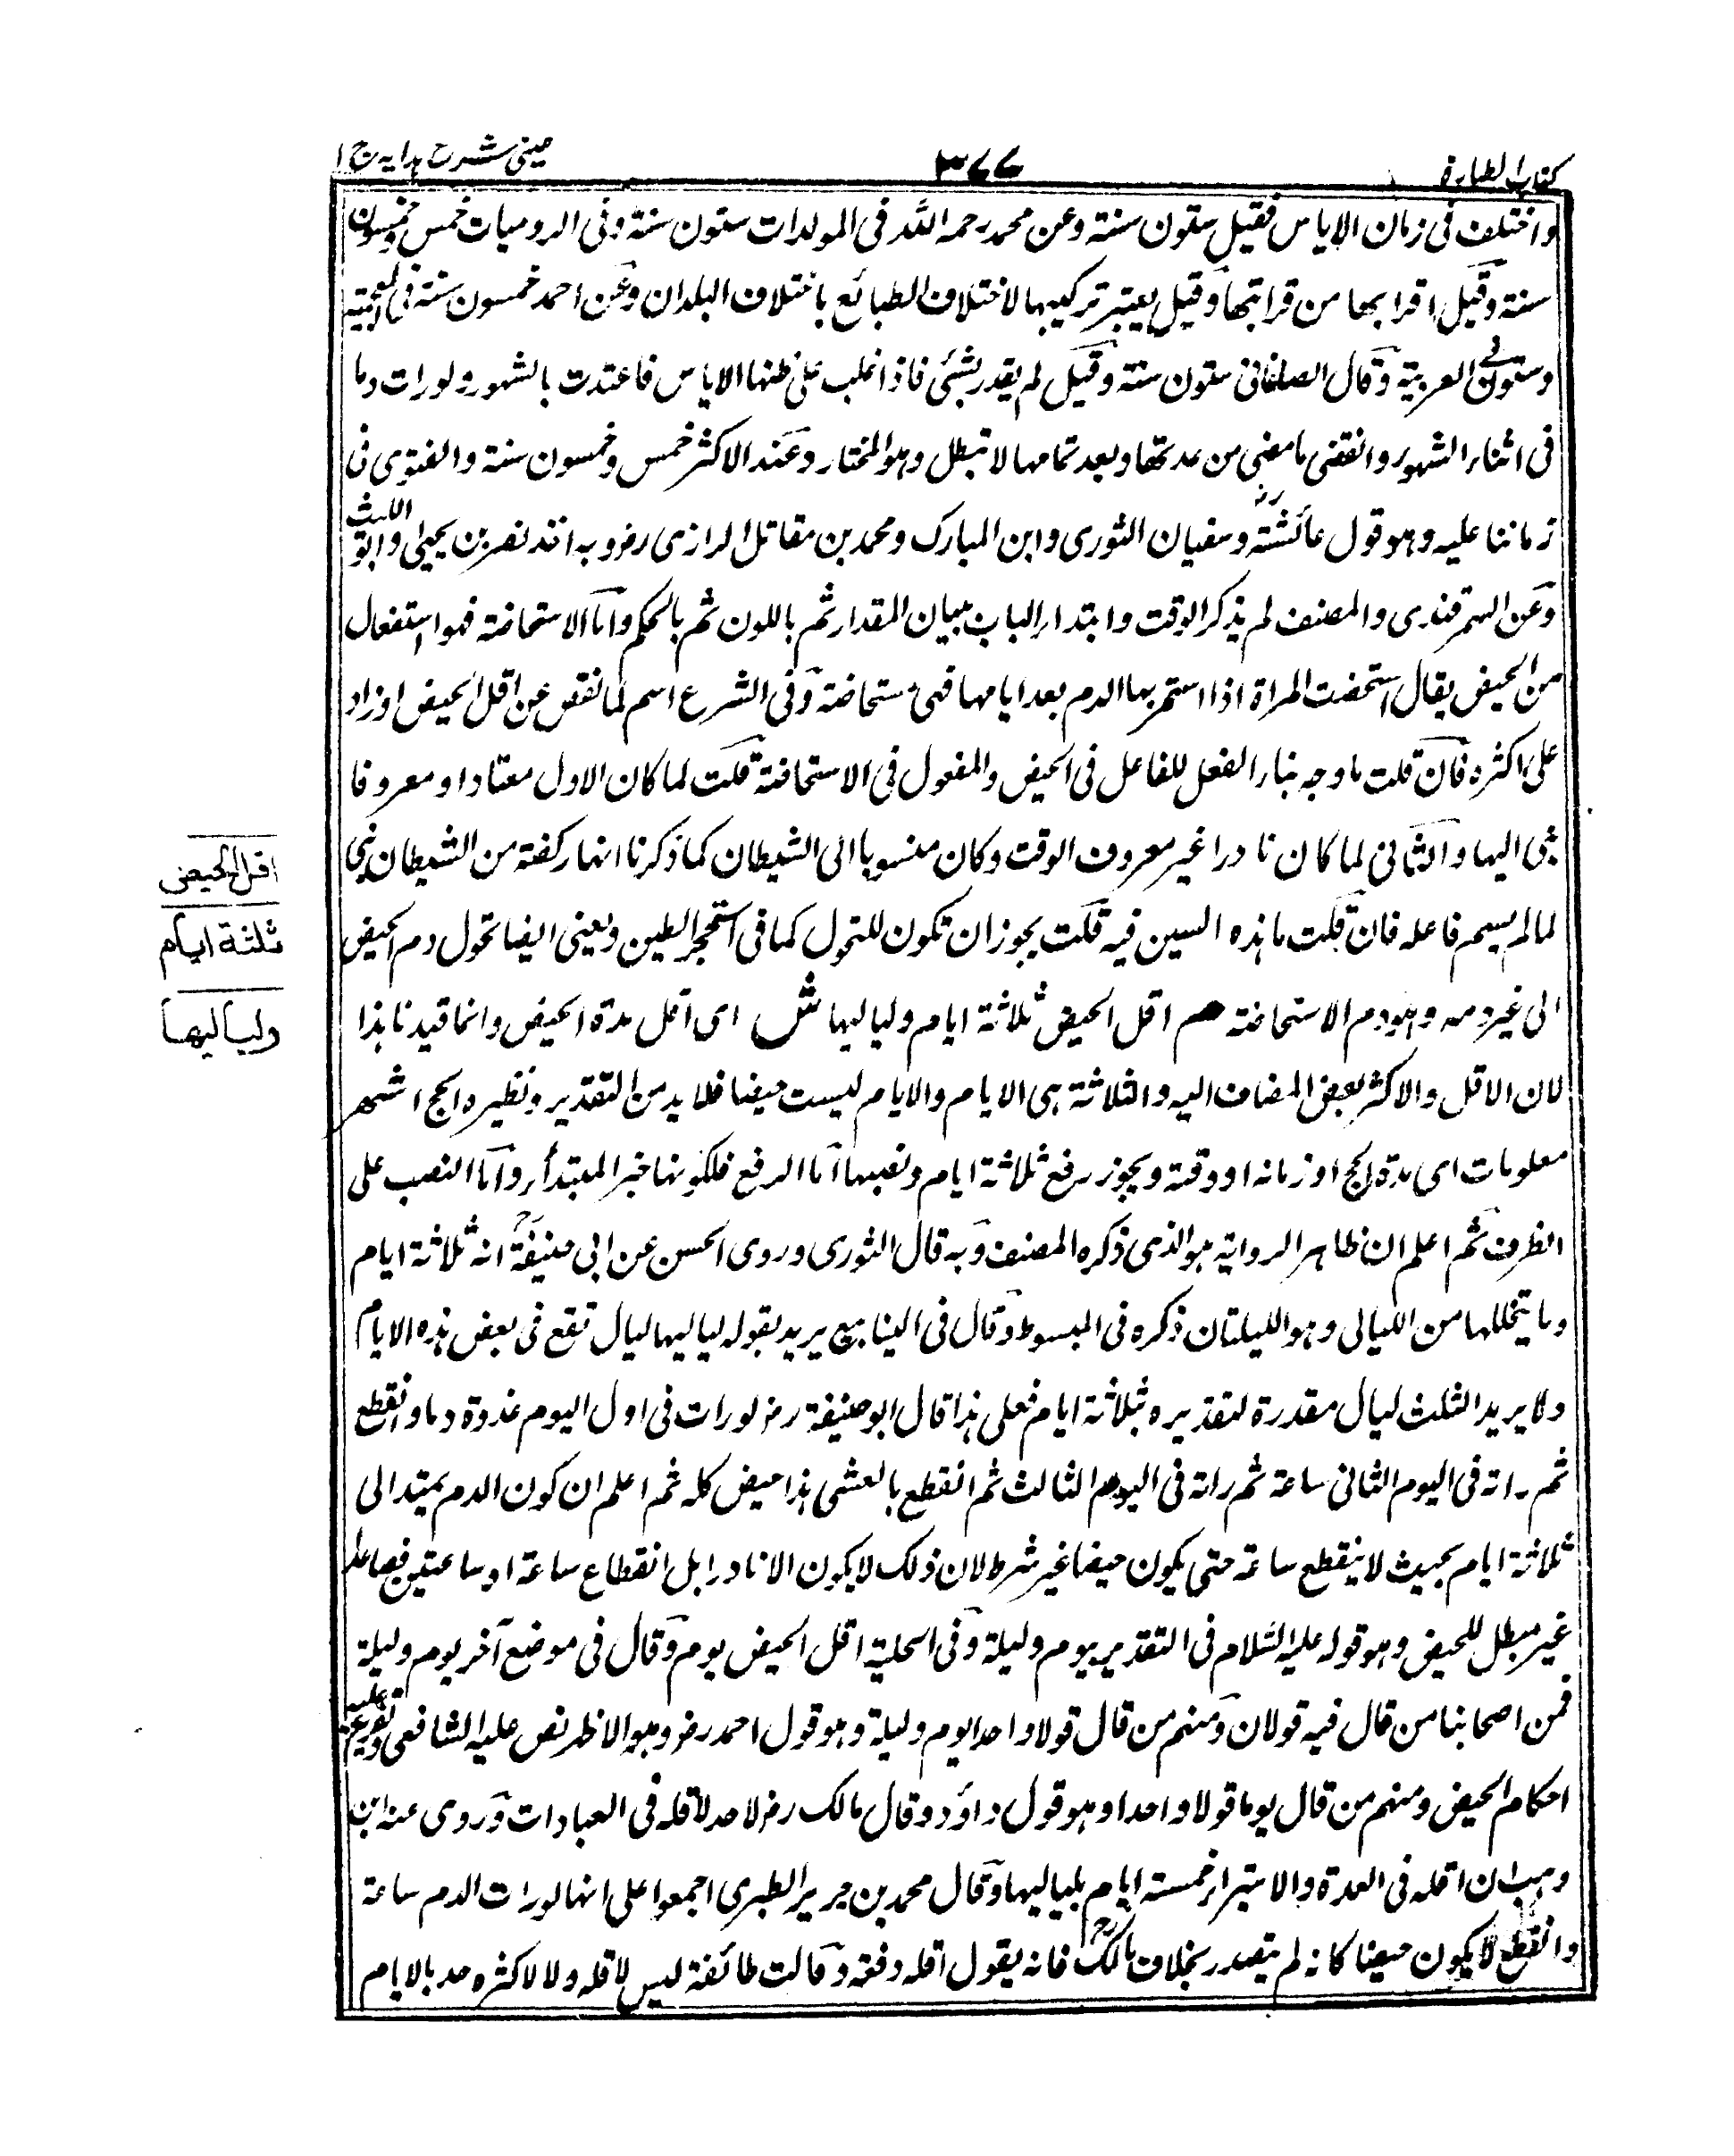 كتاب الطهارة
٣٧٧
عینی شرح هدایه ج ١
واختلف فی زمان الایاس فقیل ستون سنة وعن محمد رحمه الله فی المولدات ستون سنة وفی الرومیات خمس وخمسون
سنة وقیل اقرابها من قرابتها وقیل یعتبر ترکیبها لاختلاف الطبائع باختلاف البلدان وعن احمد خمسون سنة فی العجمیة
وستون فی العربیة وقال الصاغانی ستون سنة وقیل لم یقدر بشئ فاذا غلب علی ظنها الایاس فاعتدت بالشهور ولورات دما
فی اثناء الشهور وانقضی مامضی من عدتها وبعد تمامها لا تبطل وهو المختار وعند الاکثر خمس وخمسون سنة والفتوی فی
زماننا علیه وهو قول عائشة رض وسفیان الثوری وابن المبارک ومحمد بن مقاتل الرازی رض وبه اخذ نصر بن یحیی وابو اللیث
وعن السمرقندی والمصنف لم یذکر الوقت وابتداء الباب ببیان المقدار ثم باللون ثم بالحکم واما الاستحاضة فهو استفعال
من الحیض یقال استحیضت المراة اذا استمر بها الدم بعد ایامها فهی مستحاضة وفی الشرع اسم لما نقص عن اقل الحیض او زاد
علی اکثره فان قلت ما وجه بناء الفعل للفاعل فی الحیض والمفعول فی الاستحاضة قلت لما کان الاول معتادا ومعروفا
نسب الیها والثانی لما کان نادرا غیر معروف الوقت وکان منسوبا الی الشیطان کما ذکرنا انها رکضة من الشیطان بنی
لما لم یسم فاعله فان قلت ما هذه السین فیه قلت یجوز ان تکون للتحول کما فی استحجر الطین وبعنی ایضا تحول دم الحیض
الی غیر دمه وهو دم الاستحاضة م اقل الحیض ثلاثة ایام ولیالیها ش ای اقل مدة الحیض وانما قیدنا بهذا
لان الاقل والاکثر بعض المضاف الیه والثلاثة هی الایام والایام لیست حیضا فلا بد من التقدیر ونظیره الحج اشهر
معلومات ای مدة الحج او زمانه او وقته ویجوز رفع ثلاثة ایام ونصبها اما الرفع فلکونها خبر المبتدأ واما النصب علی
الظرف ثم اعلم ان ظاهر الروایة هو الذی ذکره المصنف وبه قال الثوری وروی الحسن عن ابی حنیفة رح انه ثلاثة ایام
وما یتخللها من اللیالی وهو اللیلتان ذکره فی المبسوط وقال فی الینابیع یرید بقوله لیالیها لیال تقع فی بعض هذه الایام
ولا یرید الثلث لیال مقدرة لتقدیره بثلاثة ایام فعلی هذا قال ابو حنیفة رض لورات فی اول الیوم غدوة دما وانقطع
ثم راته فی الیوم الثانی ساعة ثم راته فی الیوم الثالث ثم انقطع بالعشی هذا حیض کله ثم اعلم ان کون الدم یمتد الی
ثلاثة ایام بحیث لا ینقطع ساعة حتی یکون حیضا غیر شرط لان ذلک لا یکون الا نادرا بل انقطاع ساعة او ساعتین فصاعدا
غیر مبطل للحیض وهو قوله علیه السلام فی التقدیر بیوم ولیلة وفی الحلیة اقل الحیض یوم وقال فی موضع آخر یوم ولیلة
فمن اصحابنا من قال فیه قولان ومنهم من قال قولا واحدا یوم ولیلة وهو قول احمد رض وهو الاظهر نص علیه الشافعی وتفریع علیه
احکام الحیض ومنهم من قال یوما قولا واحدا وهو قول داؤد وقال مالک رض لا حد لاقله فی العبادات وروی عنه ابن
وهب ان اقله فی العدة والاستبراء خمسة ایام بلیالیها وقال محمد بن جریر الطبری اجمعوا علی انها لورات الدم ساعة
وانقطع لا یکون حیضا کانه لم یتصدر بخلاف مالک رح فانه یقول اقله دفعة وقالت طائفة لیس لاقله ولا لاکثره حد بالایام
اقل الحیض
ثلثة ایام
ولیالیها